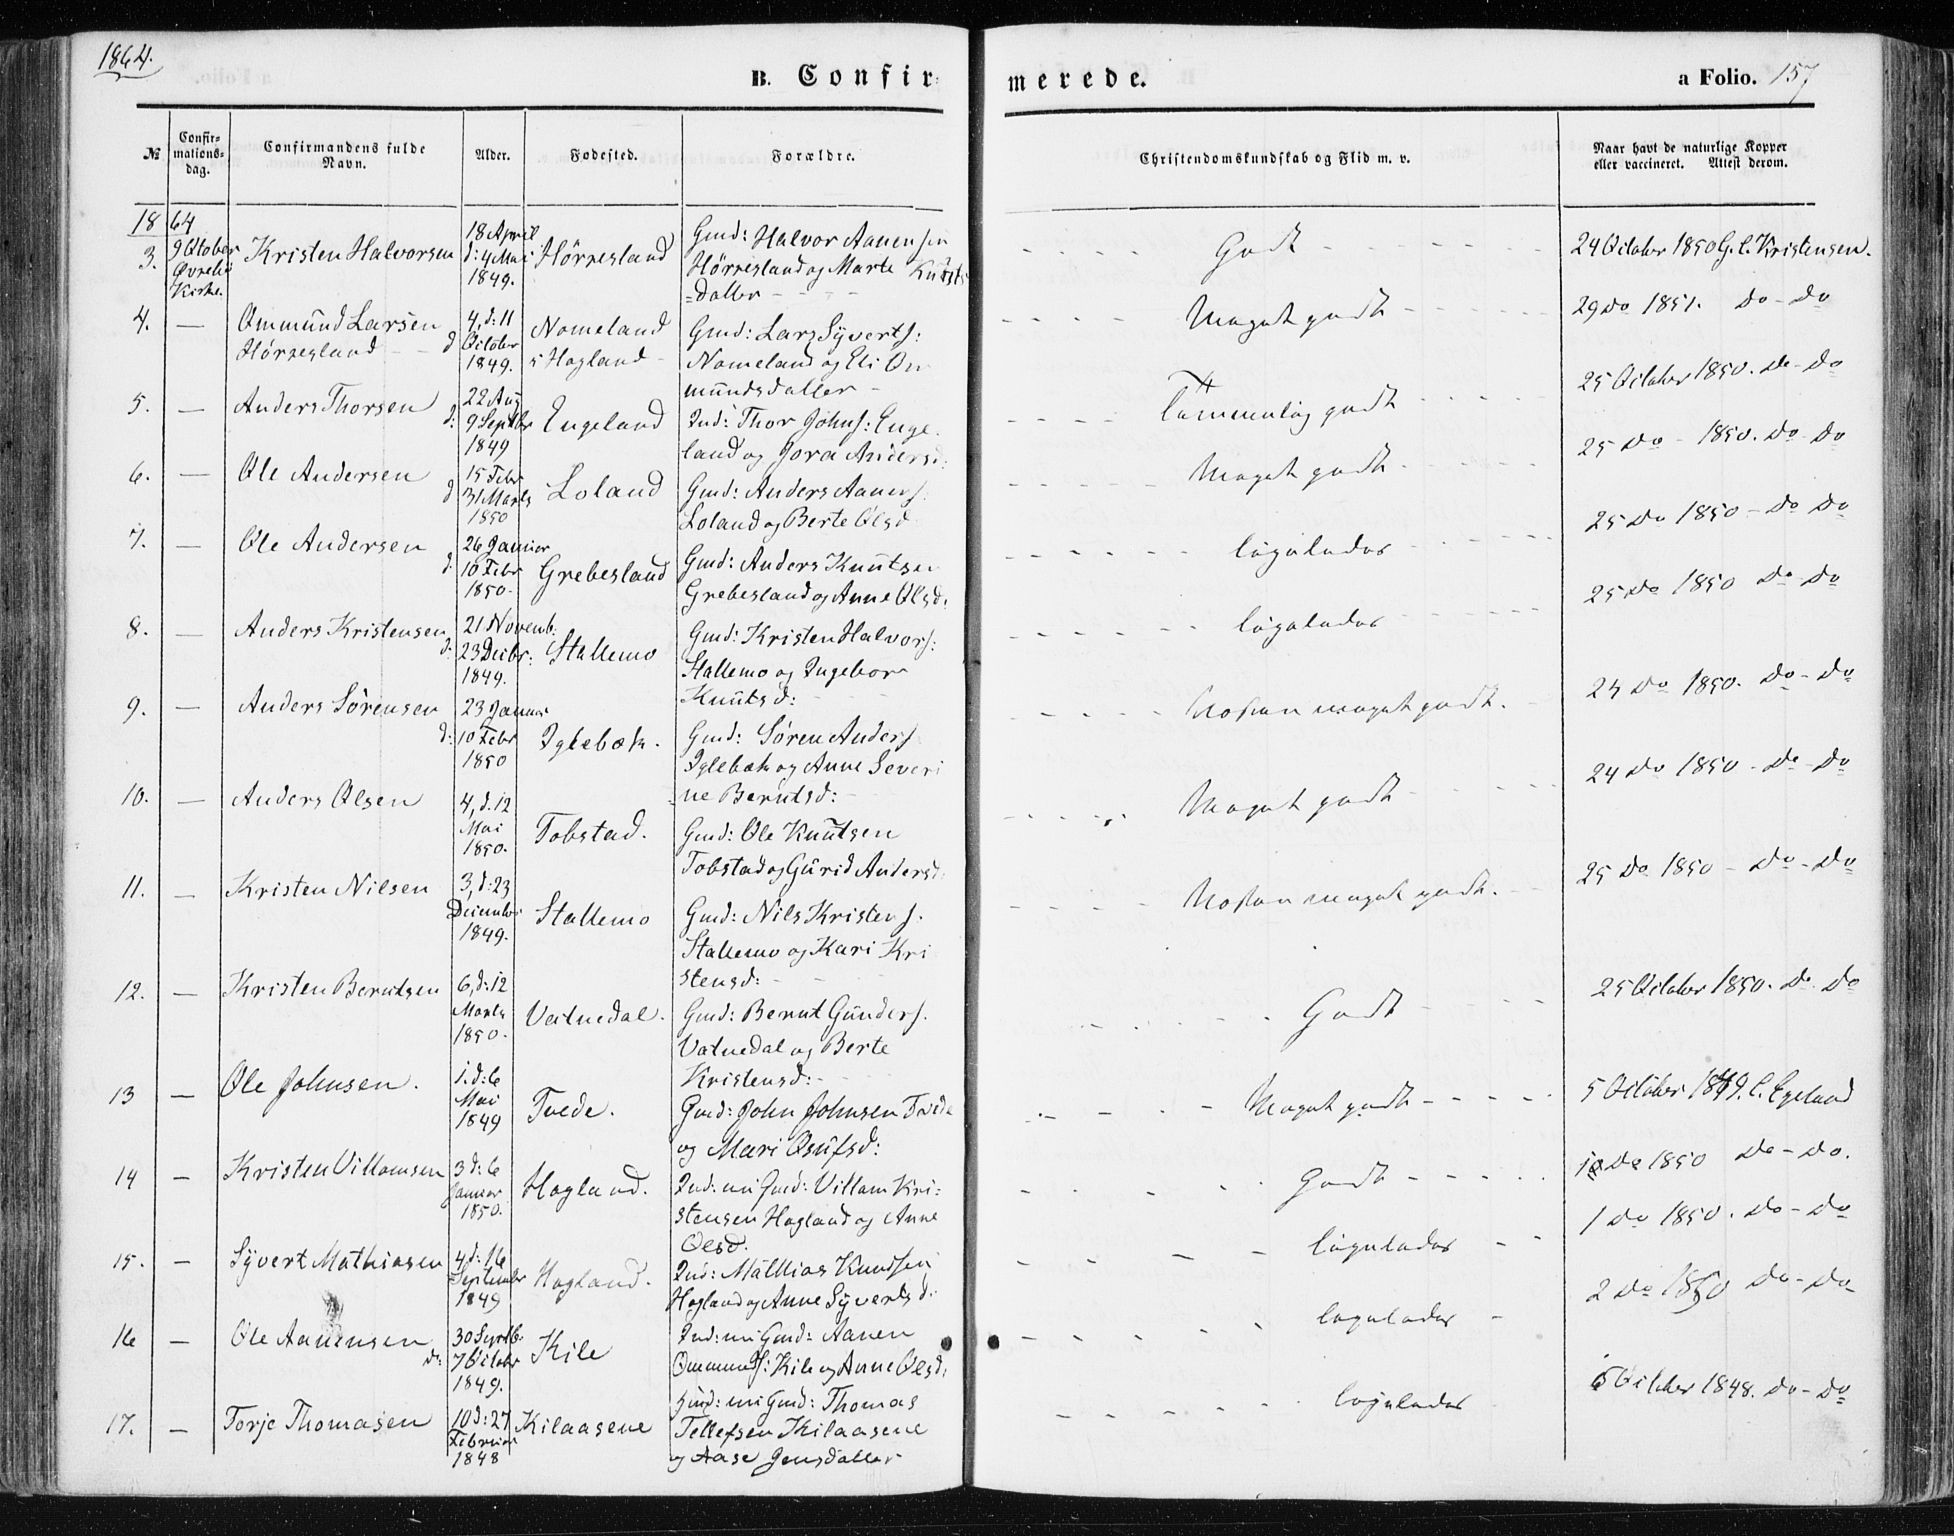 1864.
B. Confir=
merede.
a Folio. 157
№
Confir=
mations=
dag.
Confirmandens fulde
Navn.
Alder.
Fødested.
Forældre.
Christendomskundskab og Flid m. v.
Naar havt de naturlige Kopper
eller vaccineret. Attest derom.
1864
3. 9 Otober Øvrebø Kirke. Kristen Halvorsen 18 April d: 4 Mai 1849. Hørresland
Gmd: Halvor Aanensen
Hørresland og Marte Knuts
=datter
Godt
24 October 1850 G. C. Kristensen.
4. — Ommund Larsen Hørresland 4, d: 11 October 1849. Nomeland i Hogland
Gmd: Lars Syverts:
Nomeland og Eli Om
mundsdatter
Meget godt
29 Do 1851. Do - Do
5. — Anders Thorsen 22 Aug d: 9 Septbr 1849 Engeland
Ind: Thor Johns: Enge
land og Jora Andersd:
Temmelig godt
25 October 1850. Do - Do
6. — Ole Andersen 15 Febr d 31 Marts 1850 Loland
Gmd: Anders Aanens.
Loland og Berte Olsd
Meget godt
25 Do - 1850. Do Do
7. — Ole Andersen 26 Januar d. 10 Febr 1850. Grebesland
Gmd: Anders Knutsen
Grebesland og Anne Olsd:
ligeledes
25 Do 1850 - Do Do
8. — Anders Kristensen 21 Novemb: d: 23 Decbr: 1849. Stallemo
Gmd: Kristen Halvors:
Stallemo og Ingebor
Knutsd:
ligeledes
25 Do 1850 Do - Do
9. — Anders Sørensen 23 Januar d: 10 Febr 1850 Iglebæk.
Gmd: Søren Anders
Iglebæk og Anne Severi
ne Berntsd:
Næsten meget godt.
24 Do 1850. Do - Do
10. — Anders Olsen 4, d. 12 Mai 1850. Tobstad.
Gmd: Ole Knutsen
Tobstad og Gurid Andersd:
Meget godt
24 Do 1850 - Do - Do
11. — Kristen Nilsen 3, d: 23 December 1849. Stallemo
Gmd: Nils Kristens.
Stallemo og Kari Kri
stensd:
Næsten meget godt.
25 Do 1850 - Do - Do
12. — Kristen Berntsen 6, d: 12 Marts 1850. Vatnedal.
Gmd: Bernt Gunders.
Vatnedal og Berte
Kristensd:
Godt
25 October 1850. Do Do
13 — Ole Johnsen. 1. d: 6 Mai 1849 Tvede.
Gmd: John Johnsen Tvede
og Mari Osufsd:
Meget godt
5 October C. Egeland
14 — Kristen Villamsen 3 d: 6 Januar 1850. Hogland.
Ind: uni Gmd: Villam Kri=
stensen Hogland og Anne
Olsd.
Godt
Do 1850 Do - Do.
15. — Syvert Mathiasen 4 d: 16 September 1849 Hogland.
Ind: Mathias Knudsen
Hogland og Anne Syvertsd:
ligeledes
1 Do 1850. Do - Do
16 — Ole Aanensen 30 Septb. d: 7 October 1849. Kile
Ind: uni Gmd: Aanen
Ommunds: Kile og Anne Olsd:
ligeledes
2 Do 1850 Do - Do
17. — Torje Thomasen 10 d: 27 Februar 1848 Kilaasene
Ind: uni Gmd: Thomas
Tellefsen Kilaasene
og Aase Jensdatter
ligeledes
6 October 1848. Do - Do